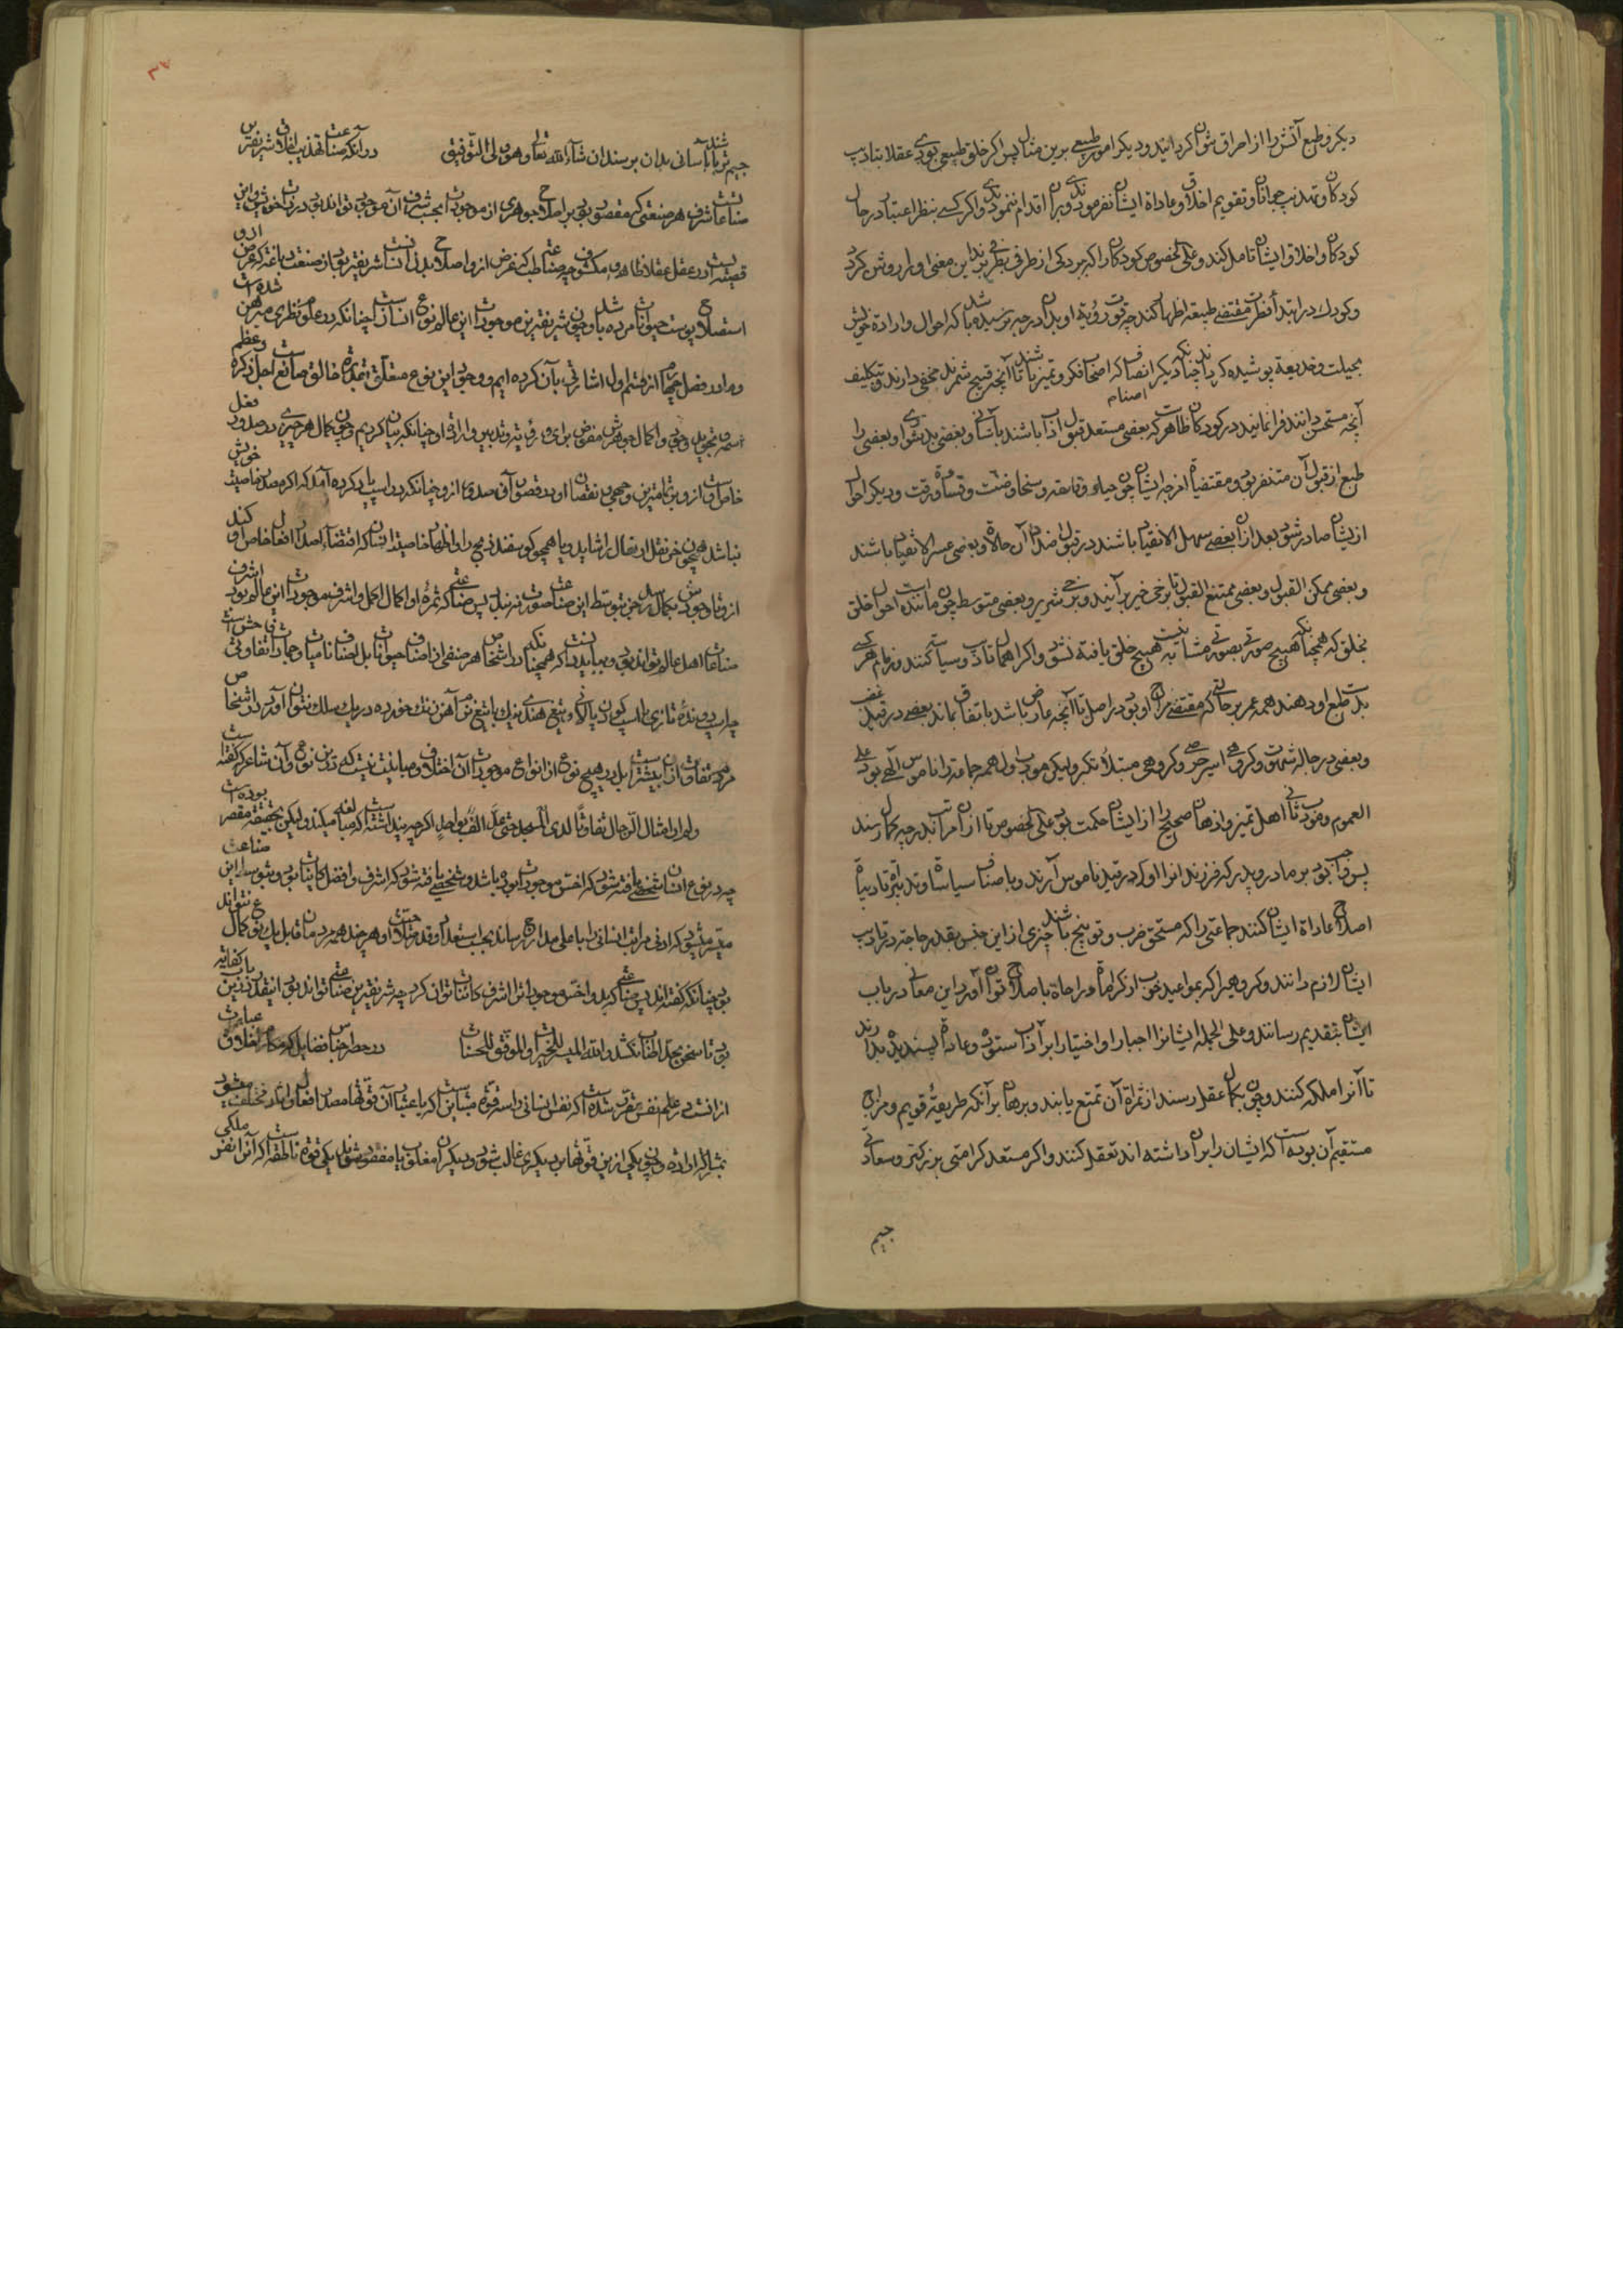 دیکر و طبع آتش را از احراق نتوان کردانید و دیکر امور طبیعی برین مثال پس اکر خلق طبیعی بودی عقلا بتادیب
کودکان و تهذیب جوانان و تقویم اخلاق و عادات ایشان نفرمودندی و بران اقدام ننمودندی و اکر کسی بنظر اعتبار در حال
کودکان و اخلاق ایشان تامل کند و علی الخصوص کودکان را که ببردکی از طرفی بطرفی برند این معنی او را روشن کردد
و کودک در ابتدا فطرت مقتضی طبیعة اظهار کند چه قوت رویة او بدان درجه نرسیده باشد که احوال و ارادة خویش
بحیلت و خدیعة پوشیده کرداند چنانکه دیکر اصناف که اصحاب فکر و تمیز باشند تا آنچه قبیح شمرند مخفی دارند و بتکلیف
آنچه مستحسن دانند فرا نمایند در کودکان ظاهرست که بعضی مستعد قبول آداب باشند باسانی و بعضی بدشواری و بعضی را
طبع از قبول آن متنفر بود و مقتضیات امزجه ایشان چون حیا و وقاحة و سخاوت و ضنت و قساوت و رقت و دیکر احوال
از ایشان صادر شود بعد از آن بعضی سهل الانقیاد باشند در قبول اضداد آن حالات و بعضی عسر الانقیاد باشند
و بعضی ممکن القبول و بعضی ممتنع القبول تا برخی خیر برآیند و برخی شریر و بعضی متوسط چون مانند است احوال خلق
بخلق که همچنانکه هیچ صورتی بصورتی مشابه نیست هیچ خلق یافته نشود و اکر اهمال تادیب و سیاست کنند و زمام هرکسی
بدست طبع او دهند همه عمر بر حالتی که مقتضی مزاج او بود در اصل تا آنچه عارض باشد باتفاق بماند بعضی در قید غضب
و بعضی در حباله شهوت و کروهی اسیر حرص و کروهی مبتلا تکبر و لیکن مودب اول همه جماعة را ناموس آلهی بود علی
العموم و مودب ثانی اهل تمیز و اذهان صحیح را از ایشان حکمت بود علی الخصوص تا ازان مراتب بدرجه کمال رسند
پس واجب بود بر مادر و پدر که فرزند انرا اول در قید ناموس آرند و باصناف سیاسات و تدبیرات تادیبات
اصلاح عادات ایشان کنند جماعتی را که مستحق ضرب و توبیخ باشند چیزی از این جنس بقدر حاجة در تادیب
ایشان لازم دانند و کروهیرا که بمواعید خوب از کرامات و راحات باصلاح توان آورد این معانی در باب
ایشان بتقدیم رسانند و علی الجمله ایشانرا اجبارا و اختیارا بر آداب ستوده و عادات پسندیده بدارند
تا آنرا ملکه کنند و چون بکمال عقل رسند از ثمرات آن تمتع یابند و برهان برآنکه طریقهٔ قویم و مزاج
مستقیم آن بوده است که ایشان را بران داشته اند تعقل کنند و اکر مستعد کرامتی بزرکتر و سعادتی
جیم
جیم تر باشند تا باسانی بدان برسند ان شاء الله تعالی و هو ولی التوفیق در آنکه صناعت تهذیب اخلاق شریفترین
صناعاتست شرف هر صنعتی که مقصود بود بر اصلاح جوهری از موجودات بحسب شرف آن موجود تواند بود در ذات خویش و این
قضیه ایست در عقل عقلا ظاهر و مکشوف چه صناعت طب که غرض ازو اصلاح بدن انسانست شریفتر بود از صنعت دباغة که غرض ازو
استصلاح پوست حیوانات مرده باشد و چون شریفترین موجودات این عالم نوع انسانست چنانکه در علوم نظری مبرهن شده است
و ما در فصل چهارم از قسم اول اشارتی بآن کرده ایم و وجود این نوع متعلق بقدرت خالق و صانع اجل ذکره و عظم
خاص است ازو بتمامترین وجهی و نقصان او در قصور آن صدور ازو چنانکه در اسب یاد کرده آمد که اکر مصدر خاصیت خویش
نباشد همچون خر نقل اثقال را شاید و یا همچو کوسفند ذبح را و اظهار خاصیت انسان که اقتضاء اصدار افعال خاص او کند
ازو تا وجودش بکمال رسد جز بتوسط این صناعت صورت نبندد پس صناعتی که ثمرهٔ او اکمال اکمل و اشرف موجودات این عالم بود اشرف
صناعات اهل عالم تواند بود و بباید دانست که همچنانکه در اشخاص هر صنفی از اصناف حیوانات بل اصناف نباتات و جمادات تفاوتی فاحش است
چه اسب دوندهٔ تازی با اسب کودن پالانی و تیغ هندی نیک با تیغ نرم آهن زنک خورده در یک سلک نتوان آورد در اشخاص
مردم تفاوت ازان بیشترست بل در هیچ نوع از انواع موجودات آن اختلاف و مباینت نیست که درین نوع و آن شاعر که کفته است
ولم ار امثال الرجال تفاوتا لدی المجد حتی عد الف بواحد اکر چه پنداشتست که مبالغه میکند ولیکن بحقیقة مقصر بوده است
چه در نوع انسان شخصی یافته شود که اخس موجودات بود و باشد و شخصی یافته شود که اشرف و افضل کاینات بود و بتوسط این صناعت
میسر میشود که ادنی مراتب انسانی را باعلی مدارج رساند بحسب استعداد و قدر صلاحیت او هر چند همه مردمان قابل یک نوع کمال نتوانند
بود چنانکه کفته اند پس صناعتی که بدو اخس موجودات را اشرف کاینات توان کرد چه شریفترین صناعتی تواند بود اینقدر درین باب کفایة
بود تا سخن بحد اطناب نکشد والله المیسر للخیرات والموفق للحسنات در حصر اجناس فضایل که مکارم اخلاق عبارت
ازانست در علم نفس مقرر شده است که نفس انسانی را سه قوت متباینست که باعتبار آن قوتها مصدر افعال و اثار مختلف میشود
بمشارکت اراده و چون یکی ازین قوتها بر دیکری غالب شود و دیکران مغلوب یا مفقود شوند یکی قوت ناطقه است که آنرا نفس ملکی